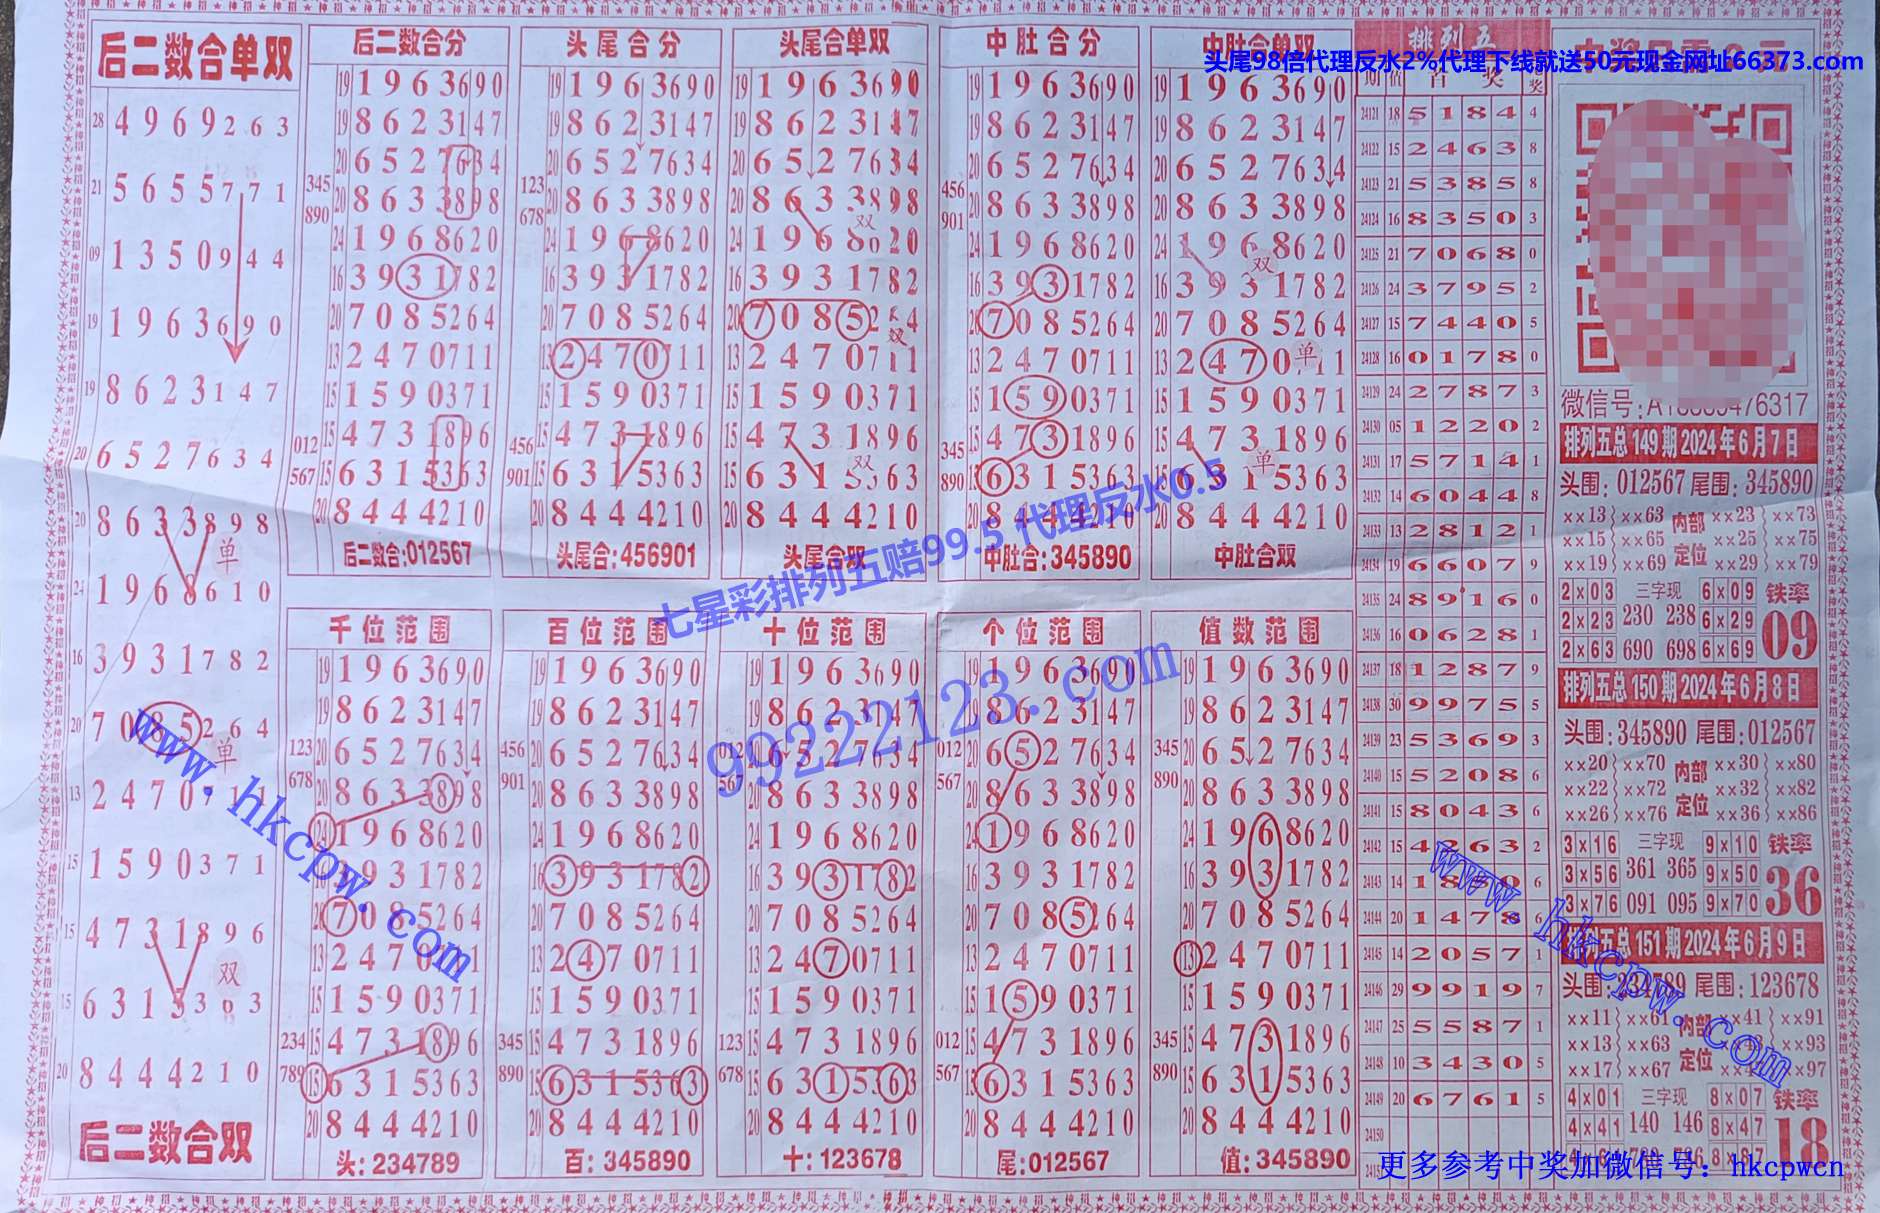 头尾98倍代理反水2%代理下线就送50元现金网址66373.com
后二数合单双
4969263
5655771
1350944
1963690
8623147
6527634
8633898
单
1968610
3931782
7085264
单
15
1590371
4731896
双
8444210
后二数合双
后二数合分
19 1963690
19 8623147
20 6527634
345
890
20 8633898
24 1968620
16 3931782
20 7085264
13 2470711
15 1590371
15 4731896
012
567
15 6315363
20 8444210
后二数合:012567
头尾合分
19 1963690
19 8623147
20 6527634
123
678
20 8633898
24 1968620
16 3931782
20 7085264
13 2470711
15 1590371
15 4731896
456
901
15 6315363
20 8444210
头尾合:456901
头尾合单双
19 1963690
19 8623147
20 6527634
20 8633898
双
24 1968620
16 3931782
双
13 2470711
15 1590371
15 4731896
双
20 8444210
头尾合双
中肚合分
19 1963690
19 8623147
20 6527634
456
901
20 8633898
24 1968620
16 3931782
20 7085264
13 2470711
15 1590371
15 4731896
345
890
15 6315363
中肚合:345890
中肚合单双
19 1963690
19 8623147
20 6527634
20 8633898
24 1968620
双
16 3931782
20 7085264
13 2470711
单
15 1590371
15 4731896
单
15 6315363
20 8444210
中肚合双
千位范围
19 1963690
19 8623147
123
678
20 6527634
20 8633898
24 1968620
20 7085264
15 1590371
234
789
15 4731896
15 6315363
20 8444210
头:234789
百位范围
19 1963690
19 8623147
456
901
20 6527634
20 8633898
24 1968620
16 3931782
20 7085264
13 2470711
15 1590371
345
890
15 4731896
15 6315363
20 8444210
百:345890
十位范围
19 1963690
012
20 8633898
24 1968620
16 3931782
20 7085264
13 2470711
15 1590371
123
678
15 4731896
15 6315363
20 8444210
十:123678
个位范围
19 1963690
012
567
20 6527634
20 8633898
24 1968620
16 3931782
20 7085264
13 2470711
15 1590371
012
567
15 4731896
15 6315363
20 8444210
尾:012567
值数范围
19 1963690
19 8623147
345
890
20 6527634
20 8633898
24 1968620
16 3931782
20 7085264
13 2470711
15 1590371
345
890
15 4731896
15 6315363
20 8444210
值:345890
排列五
24121 18 5184 4
24122 15 2463 8
24123 21 5385 8
24124 16 8350 3
24125 21 7068 0
24126 24 3795 2
24127 15 7440 5
24128 16 0178 0
24129 24 2787 3
24130 05 1220 2
24131 17 5714 1
24132 14 6044 8
24133 13 2812 1
24134 19 6607 9
24135 24 8916 0
24136 16 0628 1
24137 18 1287 9
24138 30 9975 5
24139 23 5369 3
24140 15 5208 6
24141 15 8043 6
24142 15 4263 2
24143 14 1850 6
24144 20 1478 6
24145 14 2057 1
24146 29 9919 7
24147 25 5587 1
24148 10 3430 5
24149 20 6761 5
24150
排列五总149期2024年6月7日
头围:012567 尾围:345890
××13 ××63 内部 ××23 ××73
××15 ××65 ××25 ××75
××19 ××69 定位 ××29 ××79
2×03 三字现 6×09 铁率
2×23 230 238 6×29 09
2×63 690 698 6×69
排列五总150期2024年6月8日
头围:345890 尾围:012567
××20 ××70 内部 ××30 ××80
××22 ××72 ××32 ××82
××26 ××76 定位 ××36 ××86
3×16 三字现 9×10 铁率
3×56 361 365 9×50 36
3×76 091 095 9×70
五总151期2024年6月9日
尾围:123678
××11 ××61 内部 ××41 ××91
××13 ××63 ××93
××17 ××67 定位 ××97
4×01 三字现 8×07 铁率
4×41 140 146 8×47 18
七星彩排列五赔99.5 代理反水0.5
99222123.com
www.hkcpw.com
www.hkcpw.com
更多参考中奖加微信号：hkcpwcn